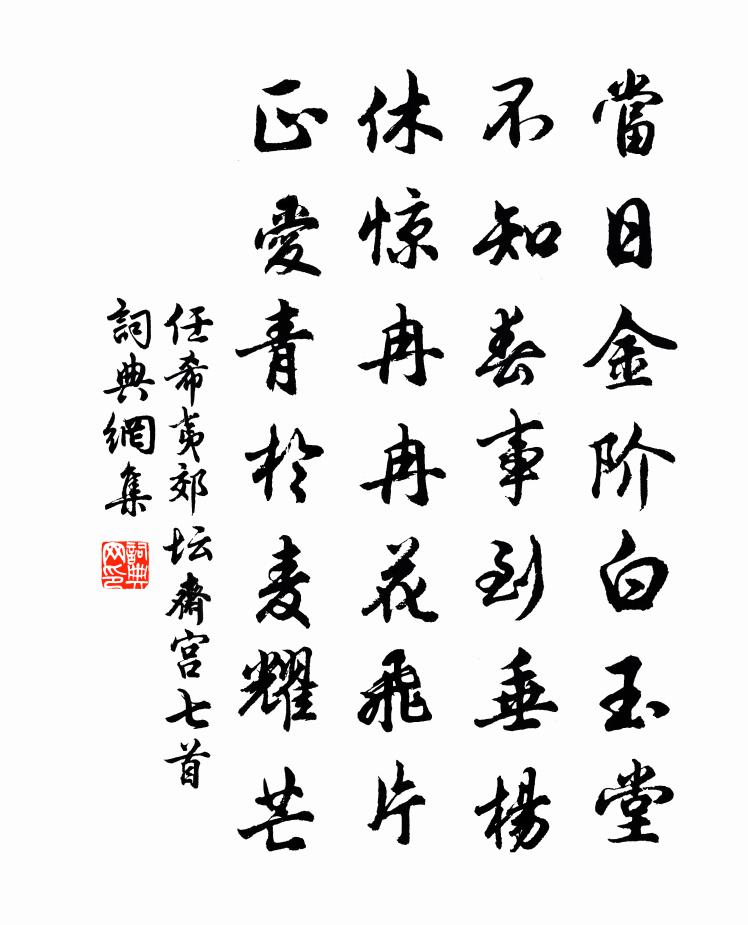 當日金阶白玉堂
不知春事到垂楊
休惊冉冉花飛片
正愛青於麦耀芒
任希夷郊坛齋宫七首
詞典網集
詞典网印